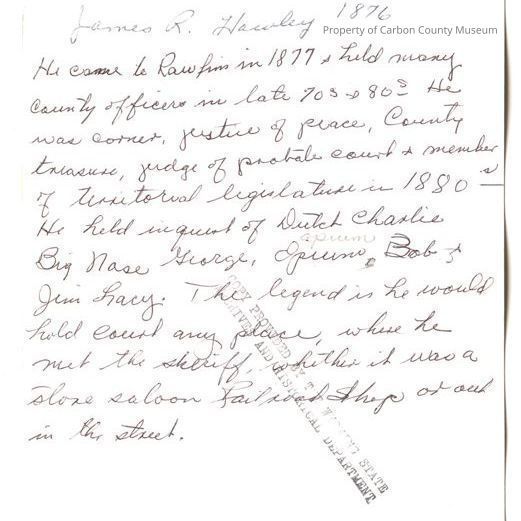 James R. Hawley 1876
Property of Carbon County Museum
He came to Rawlins in 1877 & held many
county officers in late 70s & 80s He
was corner, justice of peace, County
treasure, judge of probate court & member
of territorial legislature in 1880s
He held inquest of Dutch Charlie
opium
Big Nose George, Opium Bob &
Jim Lacy. The legend is he would
hold court any place, where he
met the sheriff, whether it was a
store saloon Railroad Shop or out
in the street.
COPY PROVIDED BY THE WYOMING STATE
ARCHIVES AND HISTORICAL DEPARTMENT